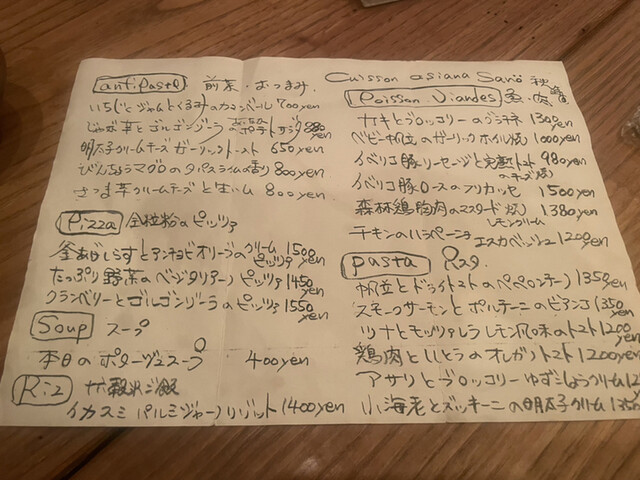 antipasto 前菜・おつまみ
いちじくジャムとくるみのカマンベール 700yen
じゃが芋とゴルゴンゾーラのポテトサラダ
明太子クリームチーズガーリックトースト 650yen
びんちょうマグロのタパスライムの香り 800yen
さつま芋クリームチーズと生ハム 800yen
Pizza 全粒粉のピッツァ
釜あげしらすとアンチョビオリーブのクリームピッツァ 1500yen
たっぷり野菜のベジタリアーノピッツァ 1450yen
クランベリーとゴルゴンゾーラのピッツァ 1550yen
Soup スープ
本日のポタージュスープ 400yen
Riz 雑穀米ご飯
イカスミパルミジャーノリゾット 1400yen
Cuisson asiana Sario 秋
Poisson Viandes 魚・肉
カキとブロッコリーのグラチネ 1300yen
ベビー帆立のガーリックホイル焼 1000yen
イベリコ豚ソーセージと完熟トマトのチーズ焼 980yen
イベリコ豚ロースのフリカッセ 1500yen
森林鶏胸肉のマスタード焼 レモンクリーム 1380yen
チキンのハラペーニョエスカベッシュ 1200yen
pasta パスタ
帆立とドライトマトのペペロンチーノ 1350yen
スモークサーモンとポルチーニのビアンコ 1350yen
ツナとモッツァレラレモン風味のトマト 1200yen
鶏肉とししとうのオレガノトマト 1200yen
アサリとブロッコリーゆずこしょうクリーム
小海老とズッキーニの明太子クリーム 1350